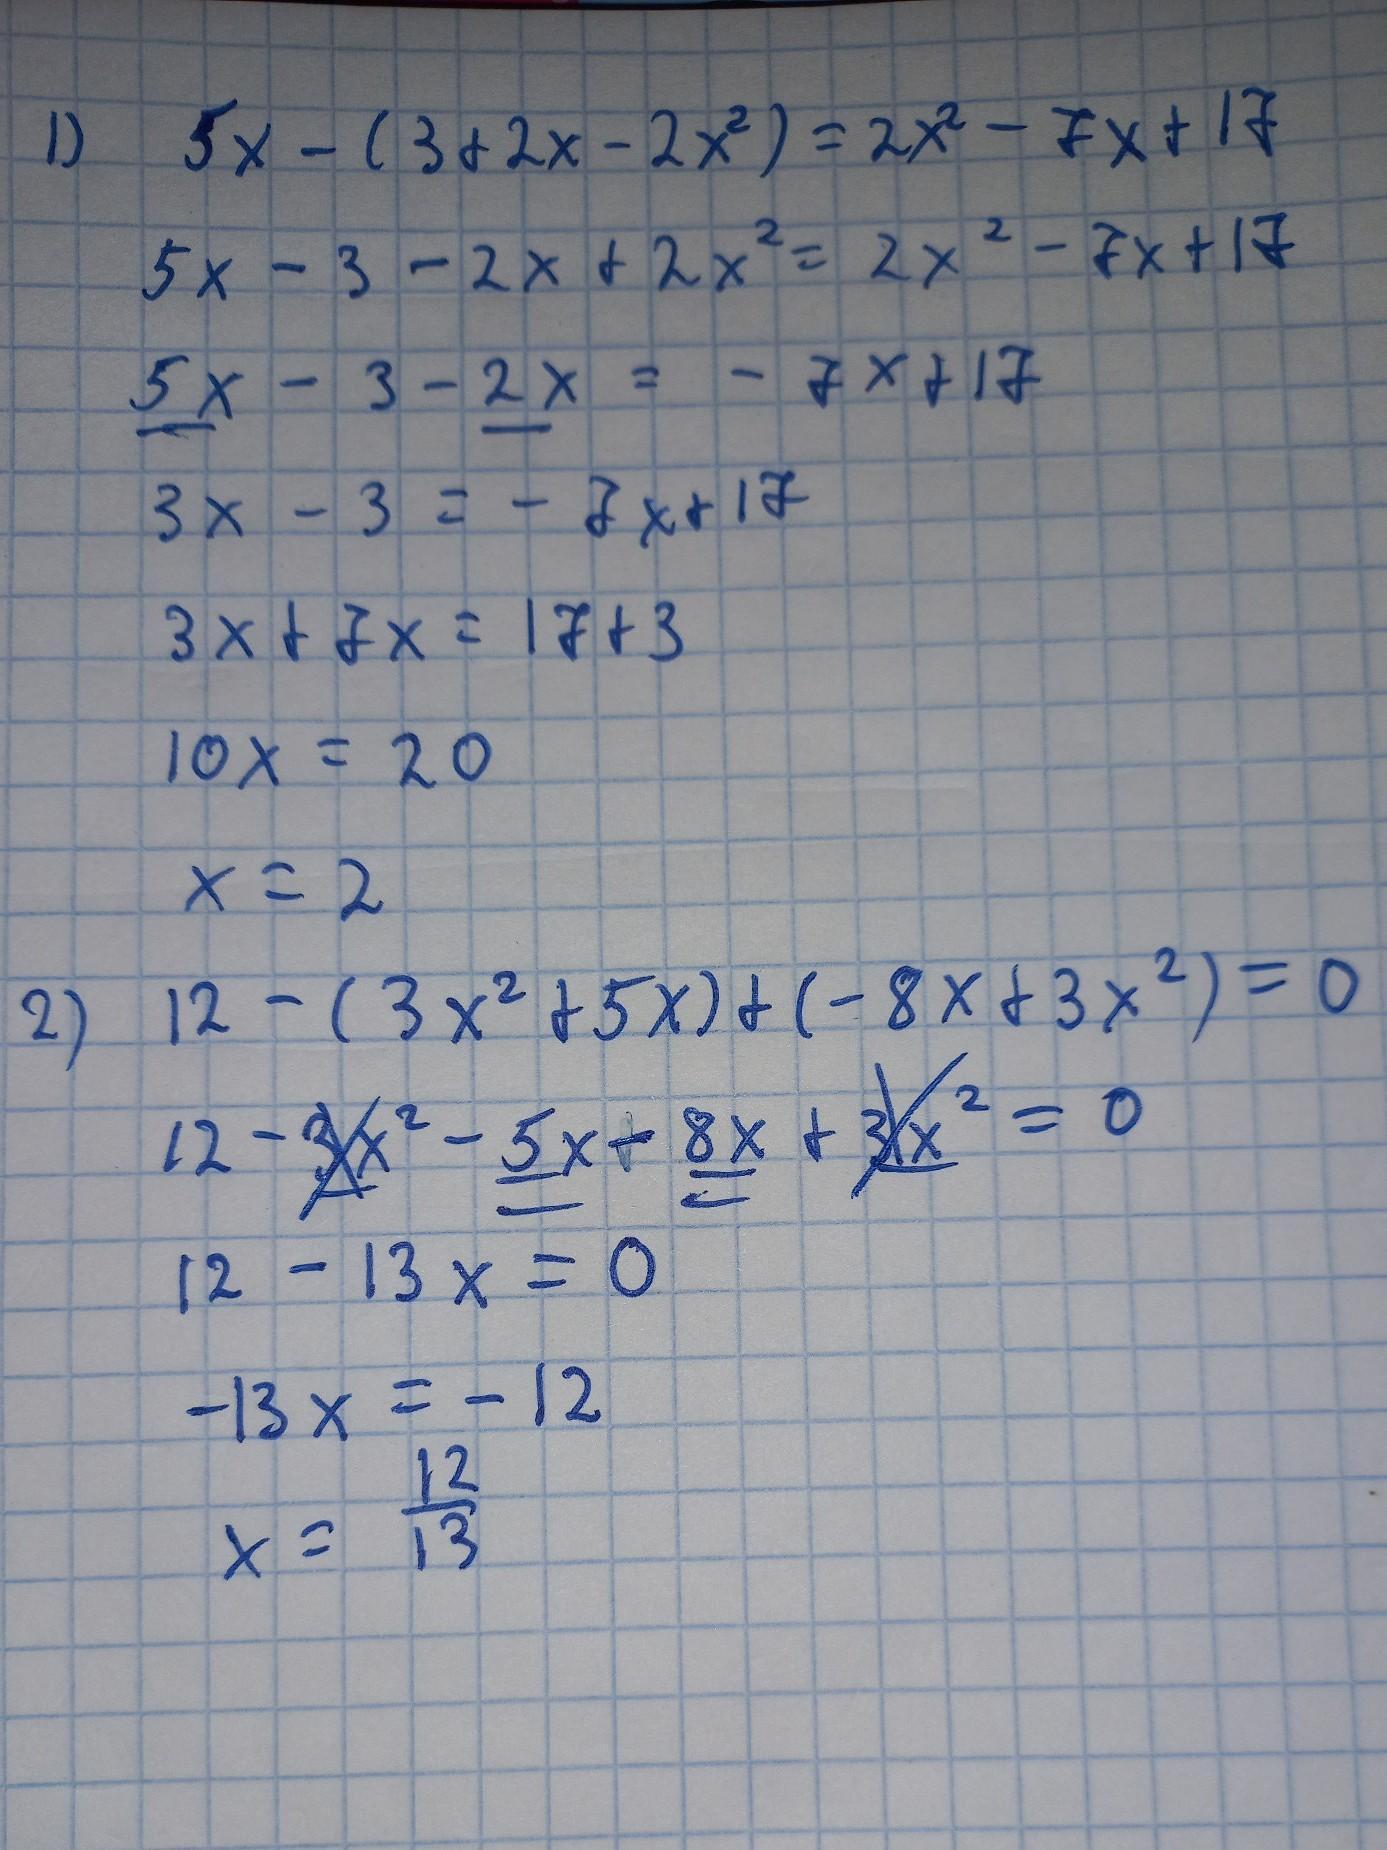 1) 5x - (3+2x - 2x²) = 2x² - 7x + 17
5x - 3 - 2x + 2x² = 2x² - 7x + 17
5x - 3 - 2x = - 7x + 17
3x - 3 = - 7x + 17
3x + 7x = 17 + 3
10x = 20
x = 2
2) 12 - (3x² + 5x) + (- 8x + 3x²) = 0
12 - 3x² - 5x - 8x + 3x² = 0
12 - 13x = 0
-13x = - 12
x = 12/13